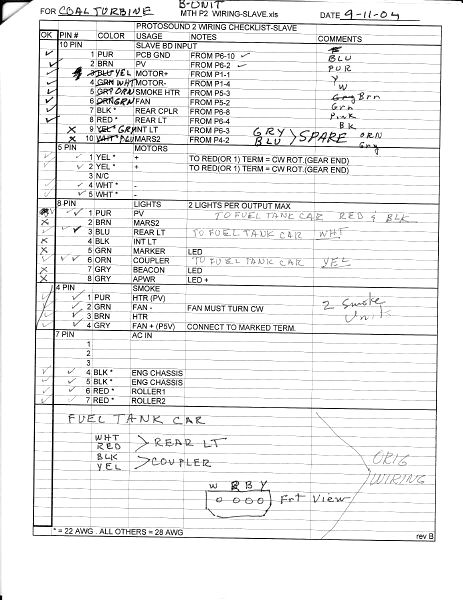 FOR COAL TURBINE B-UNIT MTH P2 WIRING-SLAVE.xls DATE 9-11-04
PROTOSOUND 2 WIRING CHECKLIST-SLAVE
OK PIN # COLOR USAGE NOTES COMMENTS
10 PIN SLAVE BD INPUT
1 PUR PCB GND FROM P6-10 ✓ BLU
2 BRN PV FROM P6-2 ✓ PUR
3 BLU YEL MOTOR+ FROM P1-1 Y
4 GRN WHT MOTOR- FROM P1-4 W
5 GRY ORN SMOKE HTR FROM P5-3 Gry Brn
6 ORN GRN FAN FROM P5-2 Grn
7 BLK * REAR CPLR FROM P6-8 Pink
8 RED * REAR LT FROM P6-4 BK
X 9 YEL * GRY INT LT FROM P6-3 GRY SPARE ORN
X 10 WHT * BLU MARS2 FROM P4-2 BLU Gry
5 PIN MOTORS
1 YEL * + TO RED(OR 1) TERM = CW ROT.(GEAR END)
2 YEL * + TO RED(OR 1) TERM = CW ROT.(GEAR END)
3 N/C
4 WHT * -
5 WHT * -
8 PIN LIGHTS 2 LIGHTS PER OUTPUT MAX
1 PUR PV TO FUEL TANK CAR RED & BLK
X 2 BRN MARS2
3 BLU REAR LT TO FUEL TANK CAR WHT
X 4 BLK INT LT
X 5 GRN MARKER LED
6 ORN COUPLER TO FUEL TANK CAR YEL
X 7 GRY BEACON LED
X 8 GRY APWR LED +
4 PIN SMOKE
1 PUR HTR (PV) 2 Smoke
2 GRN FAN - FAN MUST TURN CW Unit
3 BRN HTR
4 GRY FAN + (P5V) CONNECT TO MARKED TERM.
7 PIN AC IN
1
2
3
4 BLK * ENG CHASSIS
5 BLK * ENG CHASSIS
6 RED * ROLLER1
7 RED * ROLLER2
FUEL TANK CAR
WHT
RED > REAR LT
BLK
YEL > COUPLER
ORIG
WIRING
W R B Y
Frt View
* = 22 AWG . ALL OTHERS = 28 AWG rev B